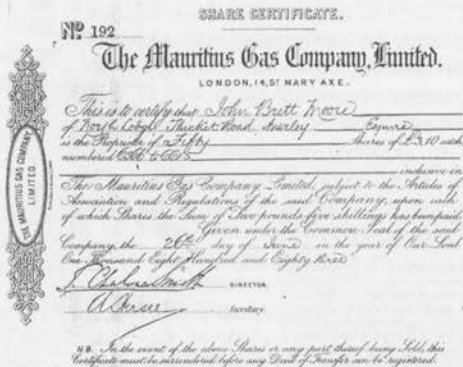 SHARE CERTIFICATE.
No 192
The Mauritius Gas Company, Limited.
LONDON, 14, ST MARY AXE.
This is to certify that John Brett Moore
of North Lodge Thicket Road Anerley Esquire
is the Proprietor of Fifty Shares of £10 each
numbered
inclusive in
The Mauritius Gas Company Limited, subject to the Articles of
Association and Regulations of the said Company, upon each
of which Shares the Sum of Two pounds five shillings has been paid
Given under the Common Seal of the said
Company, the 26th day of June in the year of Our Lord
One Thousand Eight Hundred and Eighty three
DIRECTOR.
Secretary.
N.B. In the event of the above Shares or any part thereof being Sold, this
Certificate must be surrendered before any Deed of Transfer can be registered.
THE MAURITIUS GAS COMPANY
LIMITED.